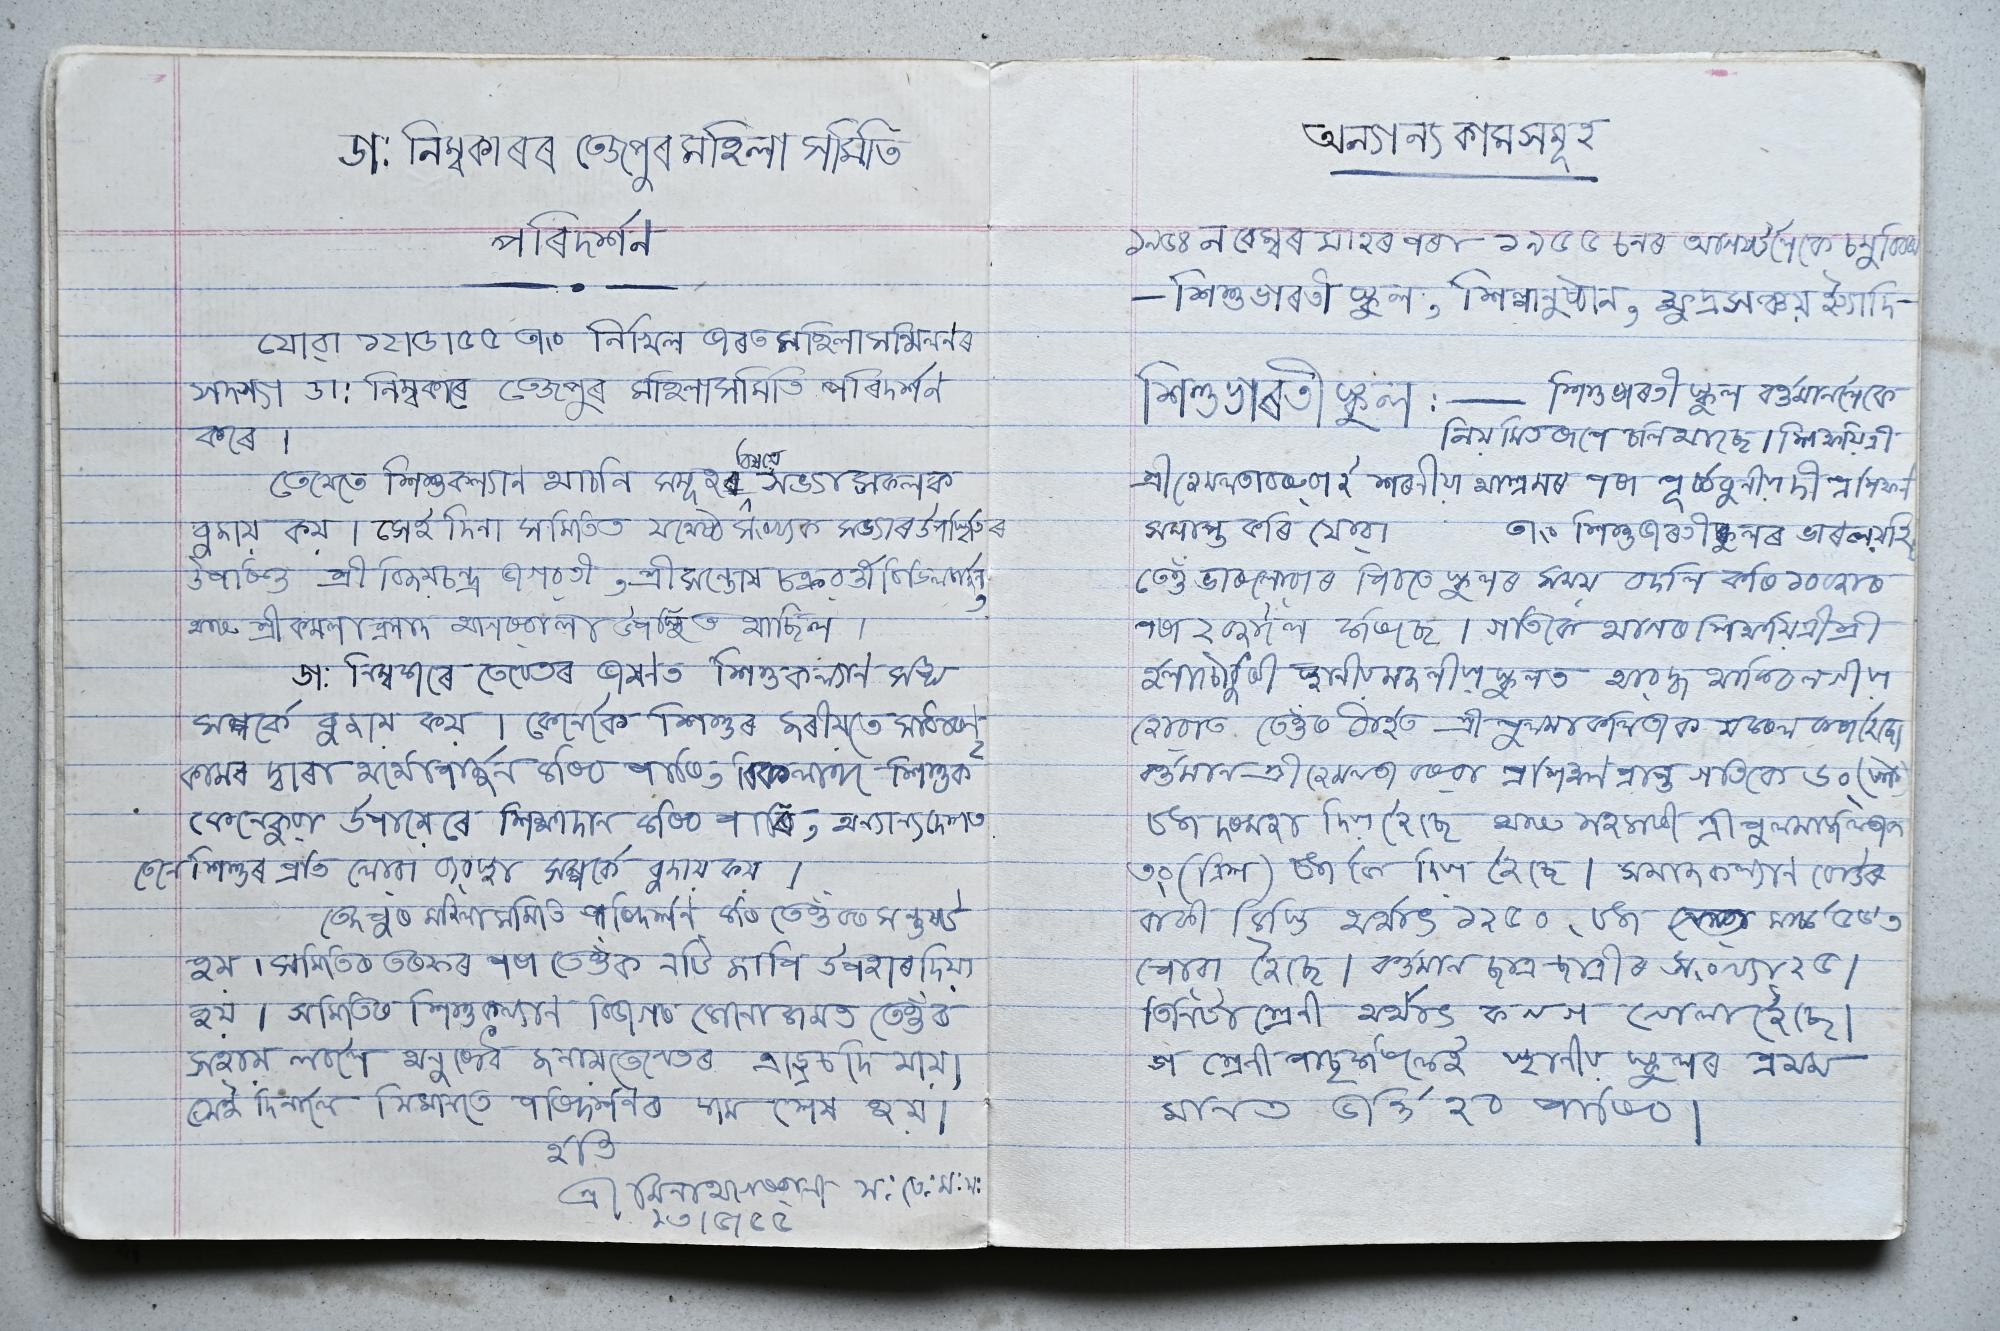 ডা: নিম্বকাৰৰ তেজপুৰ মহিলা সমিতি
পৰিদৰ্শন
যোৱা ১২।৩।৫৫ তাং নিখিল ভাৰত মহিলা সন্মিলনৰ
সদস্যা ডা: নিম্বকাৰে তেজপুৰ মহিলা সমিতি পৰিদৰ্শন
কৰে ।
তেখেতে শিশুকল্যান আচনি সমূহৰ বিষয়ে সভ্যা সকলক
বুজায় কয় । সেই দিনা সমিতিত যথেষ্ঠ সংখ্যক সভ্যাৰ উপস্থিতিৰ
উপৰিও শ্ৰী বিজয়চন্দ্ৰ ভাগৱতী , শ্ৰীসন্তোষ চক্ৰৱৰ্ত্তী
আৰু শ্ৰীকমলা প্ৰসাদ আগৰৱালা উপস্থিত আছিল ।
ডা: নিম্বকাৰে তেখেতৰ ভাষণত শিশুকল্যান
সম্পৰ্কে বুজায় কয় । কেনেকৈ শিশুৰ জৰীয়তে
কামৰ দ্বাৰা অৰ্থোপাৰ্জ্জন কৰিব পাৰি, বিকলাঙ্গ শিশুক
কেনেকুৱা উপায়েৰে শিক্ষাদান কৰিব পাৰি, অন্যান্য দেশত
তেনে শিশুৰ প্ৰতি লোৱা ব্যৱস্থা সম্পৰ্কে বুজায় কয় ।
তেজপুৰ মহিলা সমিতি পৰিদৰ্শন কৰি তেওঁ বৰ সন্তুষ্ট
হয় । সমিতিৰ তৰফৰ পৰা তেওঁক এটি জাপি উপহাৰ দিয়া
হয় । সমিতিৰ শিশুকল্যান বিভাগৰ কোনো কামত তেওঁৰ
সহায় লাগিলে অনুগ্ৰহ কৰি জনায় তেখেতৰ এড্ৰেচ দি যায়।
সেই দিনালৈ সিমানতে পৰিদৰ্শনৰ কাম শেষ হয় ।
ইতি
শ্ৰী আগৰৱালা স: তে: ম: স:
১৩।৩।৫৫
অন্যান্য কামসমূহ
১৯৫৪ নৱেম্বৰ মাহৰ পৰা ১৯৫৫ চনৰ আগষ্টলৈকে চমু বিৱৰণ
— শিশুভাৰতী স্কুল, শিল্পানুষ্ঠান, ক্ষুদ্ৰসঞ্চয় ইত্যাদি—
শিশুভাৰতী স্কুল : — শিশুভাৰতী স্কুল বৰ্ত্তমানলৈকে
নিয়মিতৰূপে চলি আছে । শিক্ষয়িত্ৰী
শ্ৰীহেমলতা বৰুৱাই শৰণীয়া আশ্ৰমৰ পৰা প্ৰশিক্ষণ
সমাপ্ত কৰি যোৱা তাং শিশুভাৰতী স্কুলৰ ভাৰ লয়হি
তেওঁ ভাৰ লোৱাৰ পিচতে স্কুলৰ সময় বদলি কৰি ১০ বজাৰ
পৰা ২ বজালৈ কৰিছে । গতিকে আগৰ শিক্ষয়িত্ৰী শ্ৰী
চৌধুৰী স্থানীয় মজলীয়া স্কুলত
হোৱাত তেওঁৰ ঠাইত শ্ৰী কলিতাক
বৰ্ত্তমান শ্ৰীহেমলতা বৰুৱা প্ৰশিক্ষণ প্ৰাপ্ত গতিকে ৬০৲
টকা দৰমহা দিয়া হৈছে আৰু সহকাৰী শ্ৰী
৩০৲ (ত্ৰিশ) টকাকৈ দিয়া হৈছে । সমাজকল্যান বোৰ্ডৰ
বাকী কিস্তি অৰ্থাৎ ১২৫০৲ টকা মাৰ্চ্চ ৫৫ ত
পোৱা হৈছে । বৰ্ত্তমান ছাত্ৰ-ছাত্ৰীৰ সংখ্যা ২৫ ।
তিনিটা শ্ৰেনী অৰ্থাৎ ক খ গ খোলা হৈছে ।
গ শ্ৰেনী পাছ কৰিলেই স্থানীয় স্কুলৰ প্ৰথম
মানত ভৰ্ত্তি হব পাৰিব ।